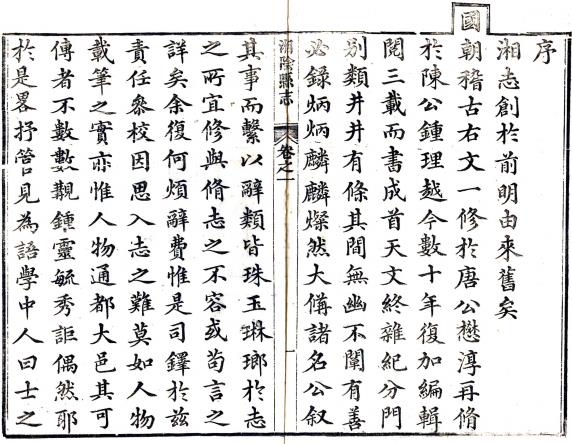 序
湘志創於前明由來舊矣
國朝稽古右文一修於唐公懋淳再脩
於陳公鍾理越今數十年復加編輯
閱三載而書成首天文終雜紀分門
别類井井有條其間無幽不闡有善
必録炳炳麟麟燦然大備諸名公叙
湘陰縣志 卷之一 一
其事而繫以辭類皆珠玉琳瑯於志
之所宜修與脩志之不容或苟言之
詳矣余復何煩辭費惟是司鐸於兹
責任叅校因思入志之難莫如人物
載筆之實亦惟人物通都大邑其可
傳者不數數覯鍾靈毓秀詎偶然耶
於是畧抒管見為語學中人曰士之